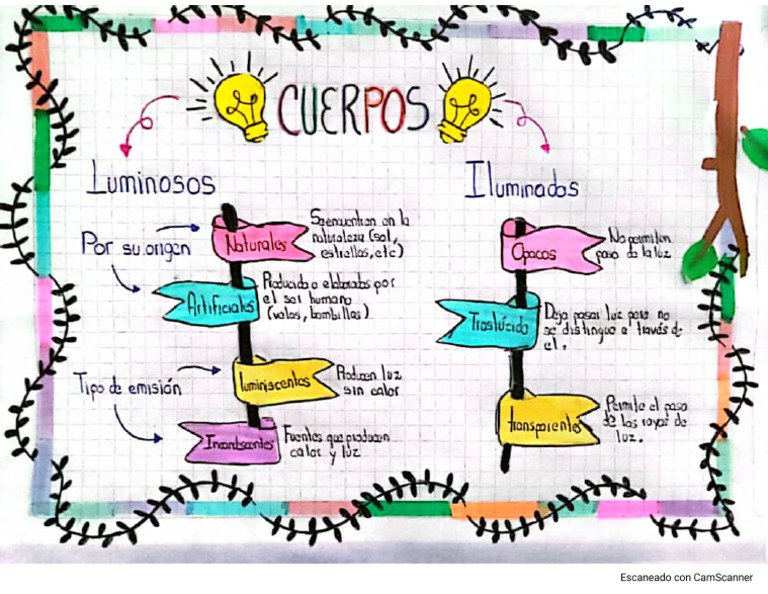 CUERPOS
Luminosos
Por su origen
Naturales
Se encuentran en la
naturaleza (sol,
estrellas, etc)
Artificiales
Producido o elaborados por
el ser humano
(velas, bombillas)
Tipo de emisión
luminiscentes
Producen luz
sin calor
Incandescentes
Fuentes que producen
calor y luz
Iluminados
Opacos
No permiten
paso de la luz
Traslúcido
Deja pasar luz pero no
se distingue a través de
el.
transparientes
Permite el paso
de los rayos de
luz.
Escaneado con CamScanner